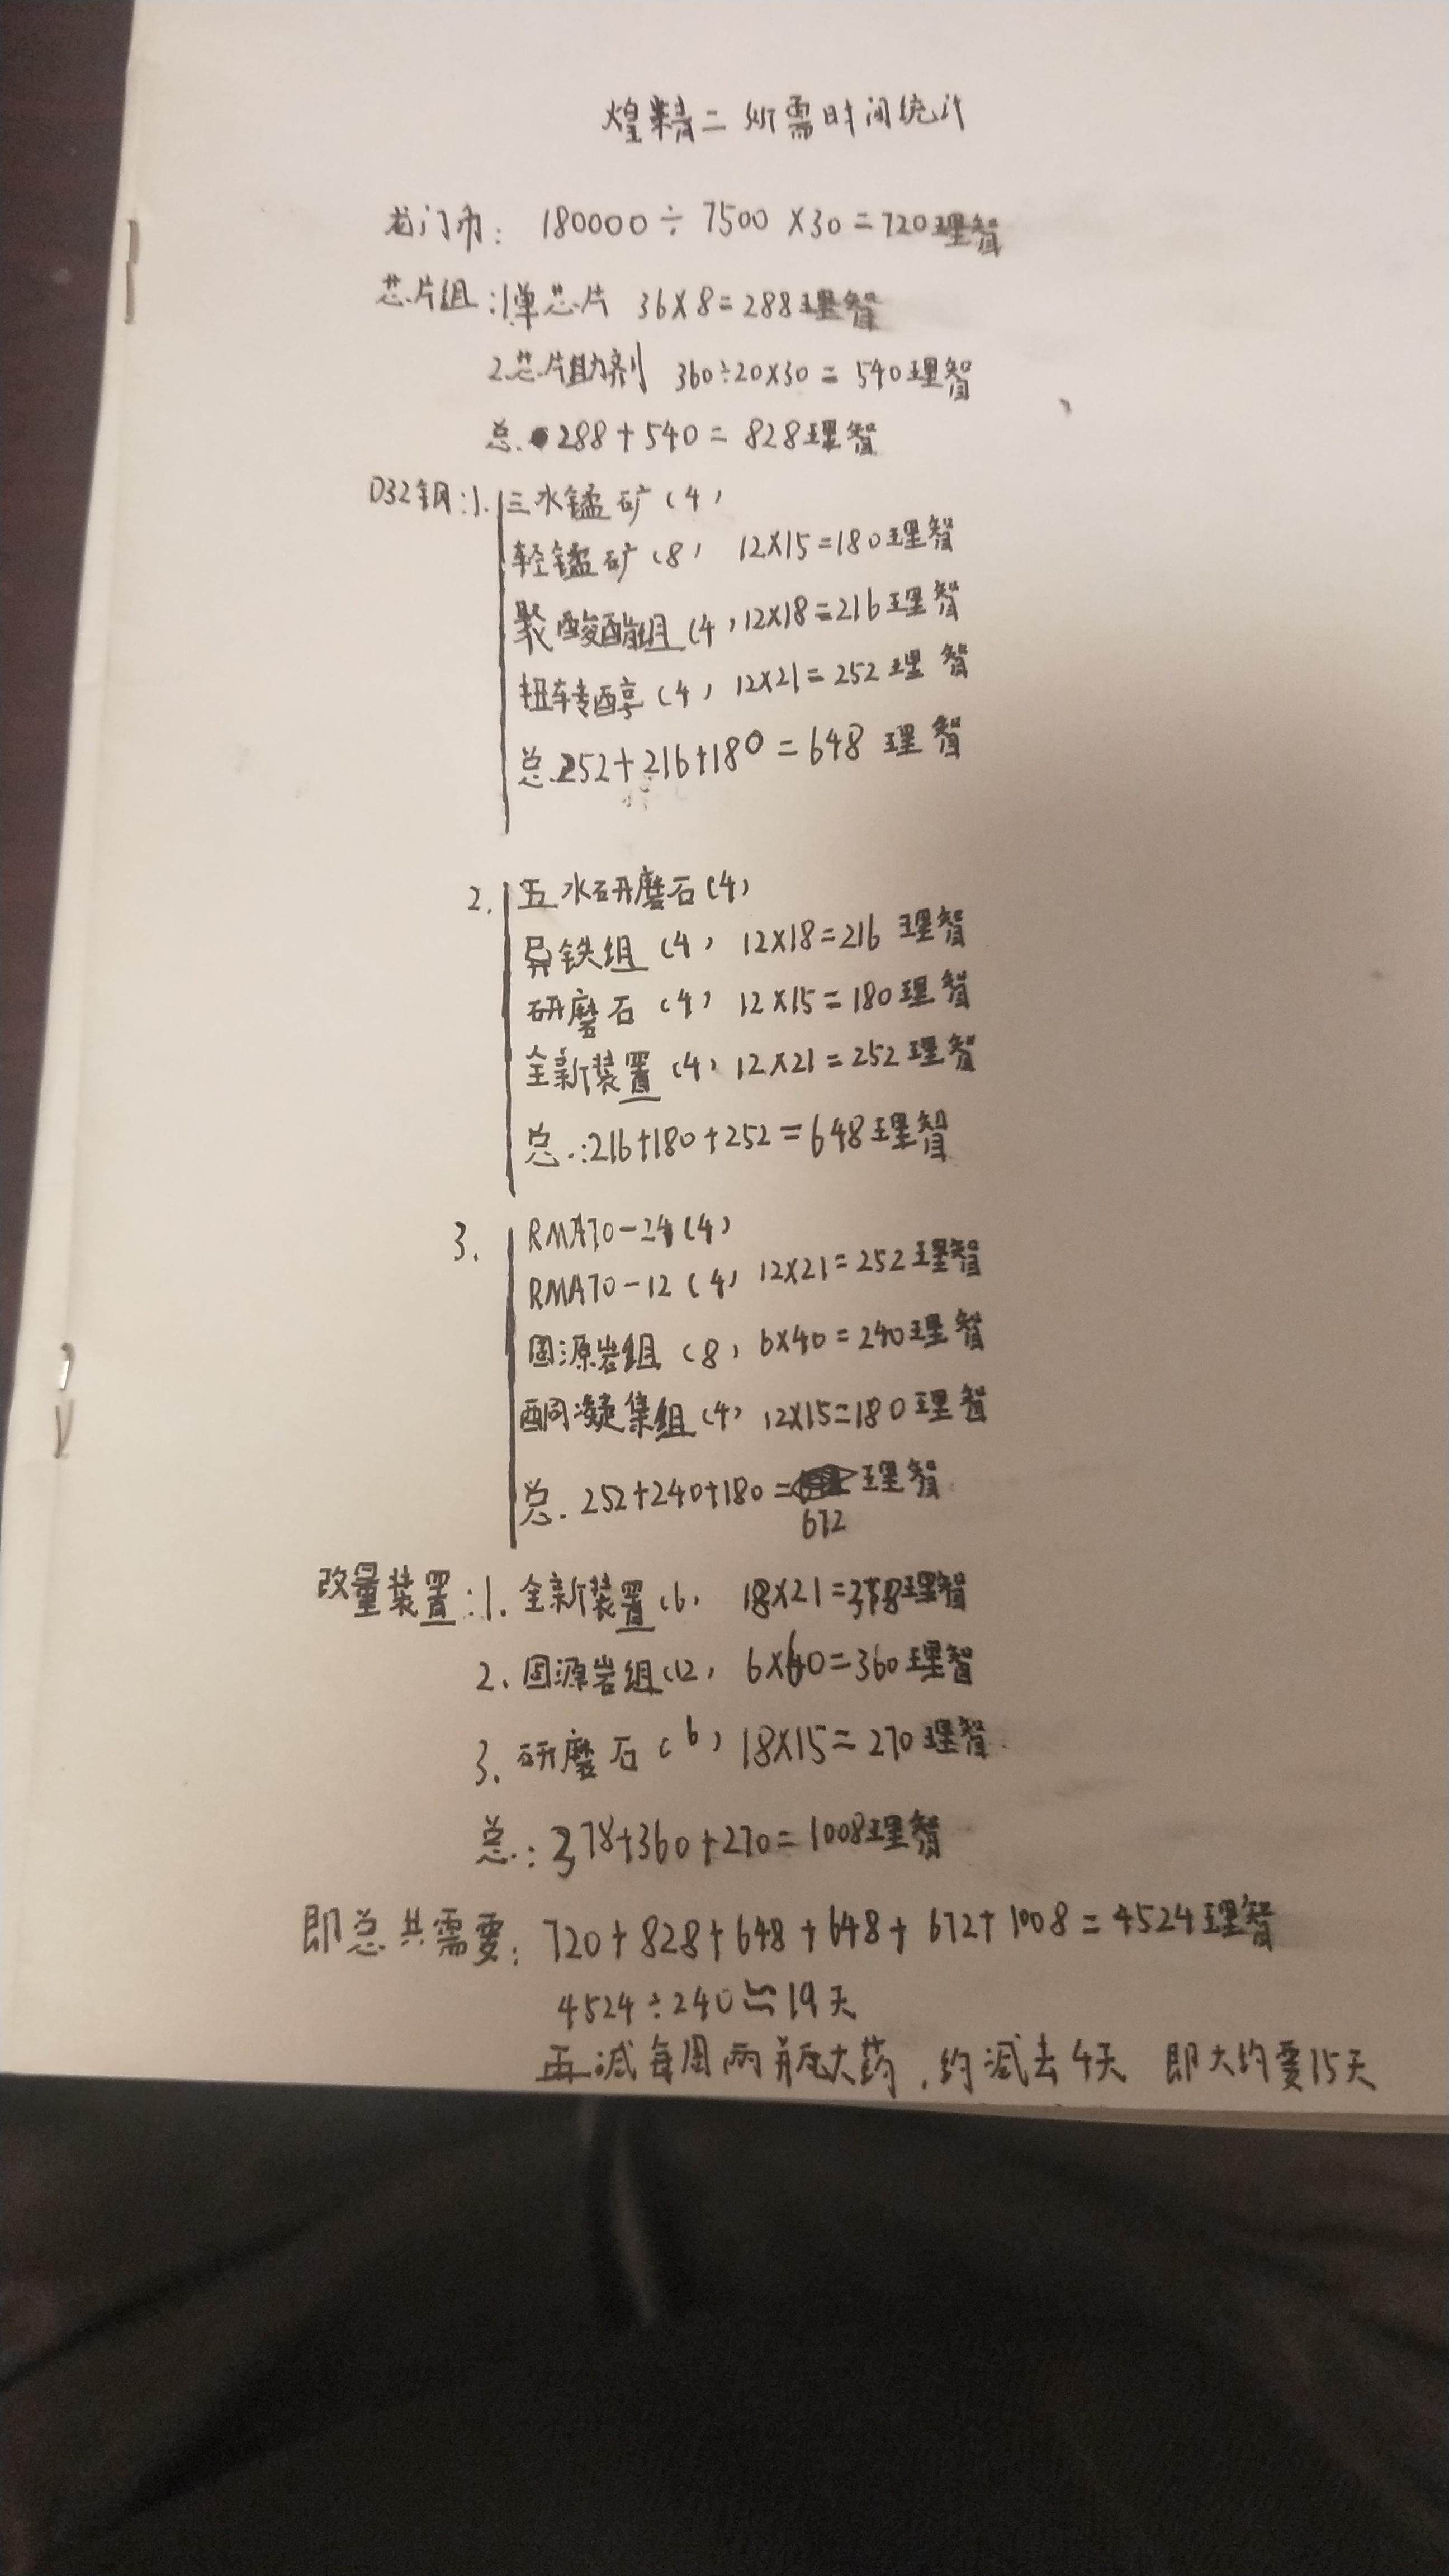 煌精二所需时间统计
龙门币: 180000÷7500×30=720理智
芯片组:1.单芯片 36×8=288理智
2.芯片助剂 360÷20×30=540理智
总.288+540=828理智
D32钢:1.三水锰矿(4)
轻锰矿(8) 12×15=180理智
聚酸酯组(4)12×18=216理智
扭转醇(4) 12×21=252理智
总.252+216+180=648理智
2.五水研磨石(4)
异铁组(4) 12×18=216理智
研磨石(4) 12×15=180理智
全新装置(4) 12×21=252理智
总.:216+180+252=648理智
3.RMA70-24(4)
RMA70-12(4) 12×21=252理智
固源岩组(8) 6×40=240理智
酮凝集组(4) 12×15=180理智
总.252+240+180=理智
672
改量装置:1.全新装置(6) 18×21=378理智
2.固源岩组(12) 6×60=360理智
3.研磨石(6) 18×15=270理智
总.:378+360+270=1008理智
即总共需要:720+828+648+648+672+1008=4524理智
4524÷240≒19天
再减每周两瓶大药,约减去4天 即大约要15天